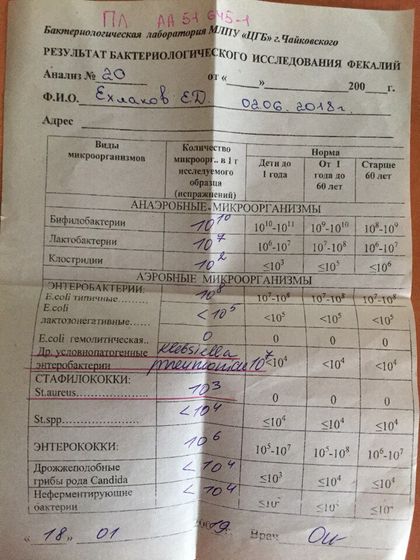 ПЛ АА 51 645-1
Бактериологическая лаборатория МЛПУ «ЦГБ» г.Чайковского
РЕЗУЛЬТАТ БАКТЕРИОЛОГИЧЕСКОГО ИССЛЕДОВАНИЯ ФЕКАЛИЙ
Анализ № 20 от «____»__________200___г.
Ф.И.О. Ехлаков Е.Д. 02.06.2018г.
Адрес
Виды микроорганизмов Количество микроорг.. в 1 г исследуемого образца (испражнений) Норма
Дети до 1 года От 1 года до 60 лет Старше 60 лет
АНАЭРОБНЫЕ МИКРООРГАНИЗМЫ
Бифилобактерии 10¹⁰ 10¹⁰-10¹¹ 10⁹-10¹⁰ 10⁸-10⁹
Лактобактерии 10⁷ 10⁶-10⁷ 10⁷-10⁸ 10⁶-10⁷
Клостридии 10² ≤10³ ≤10⁵ ≤10⁶
АЭРОБНЫЕ МИКРООРГАНИЗМЫ
ЭНТЕРОБАКТЕРИИ:
E.coli типичные........ 10⁸ 10⁷-10⁸ 10⁷-10⁸ 10⁷-10⁸
E.coli лактозонегативные...... <10⁵ <10⁵ <10⁵ <10⁵
E.coli гемолитическая.. 0 0 0 0
Др. условнопатогенные энтеробактерии Klebsiella pneumoniae 10⁷ <10⁴ <10⁴ <10⁴
СТАФИЛОКОККИ:
St.aureus............ 10³ 0 0 0
St.spp............ <10⁴ ≤10⁴ ≤10⁴
ЭНТЕРОКОККИ: 10⁶ 10⁵-10⁷ 10⁵-10⁸ 10⁶-10⁷
Дрожжеподобные грибы рода Candida <10⁴ ≤10³ ≤10⁴ ≤10⁴
Неферментирующие бактерии <10⁴
« 18 » 01 9г. Врач